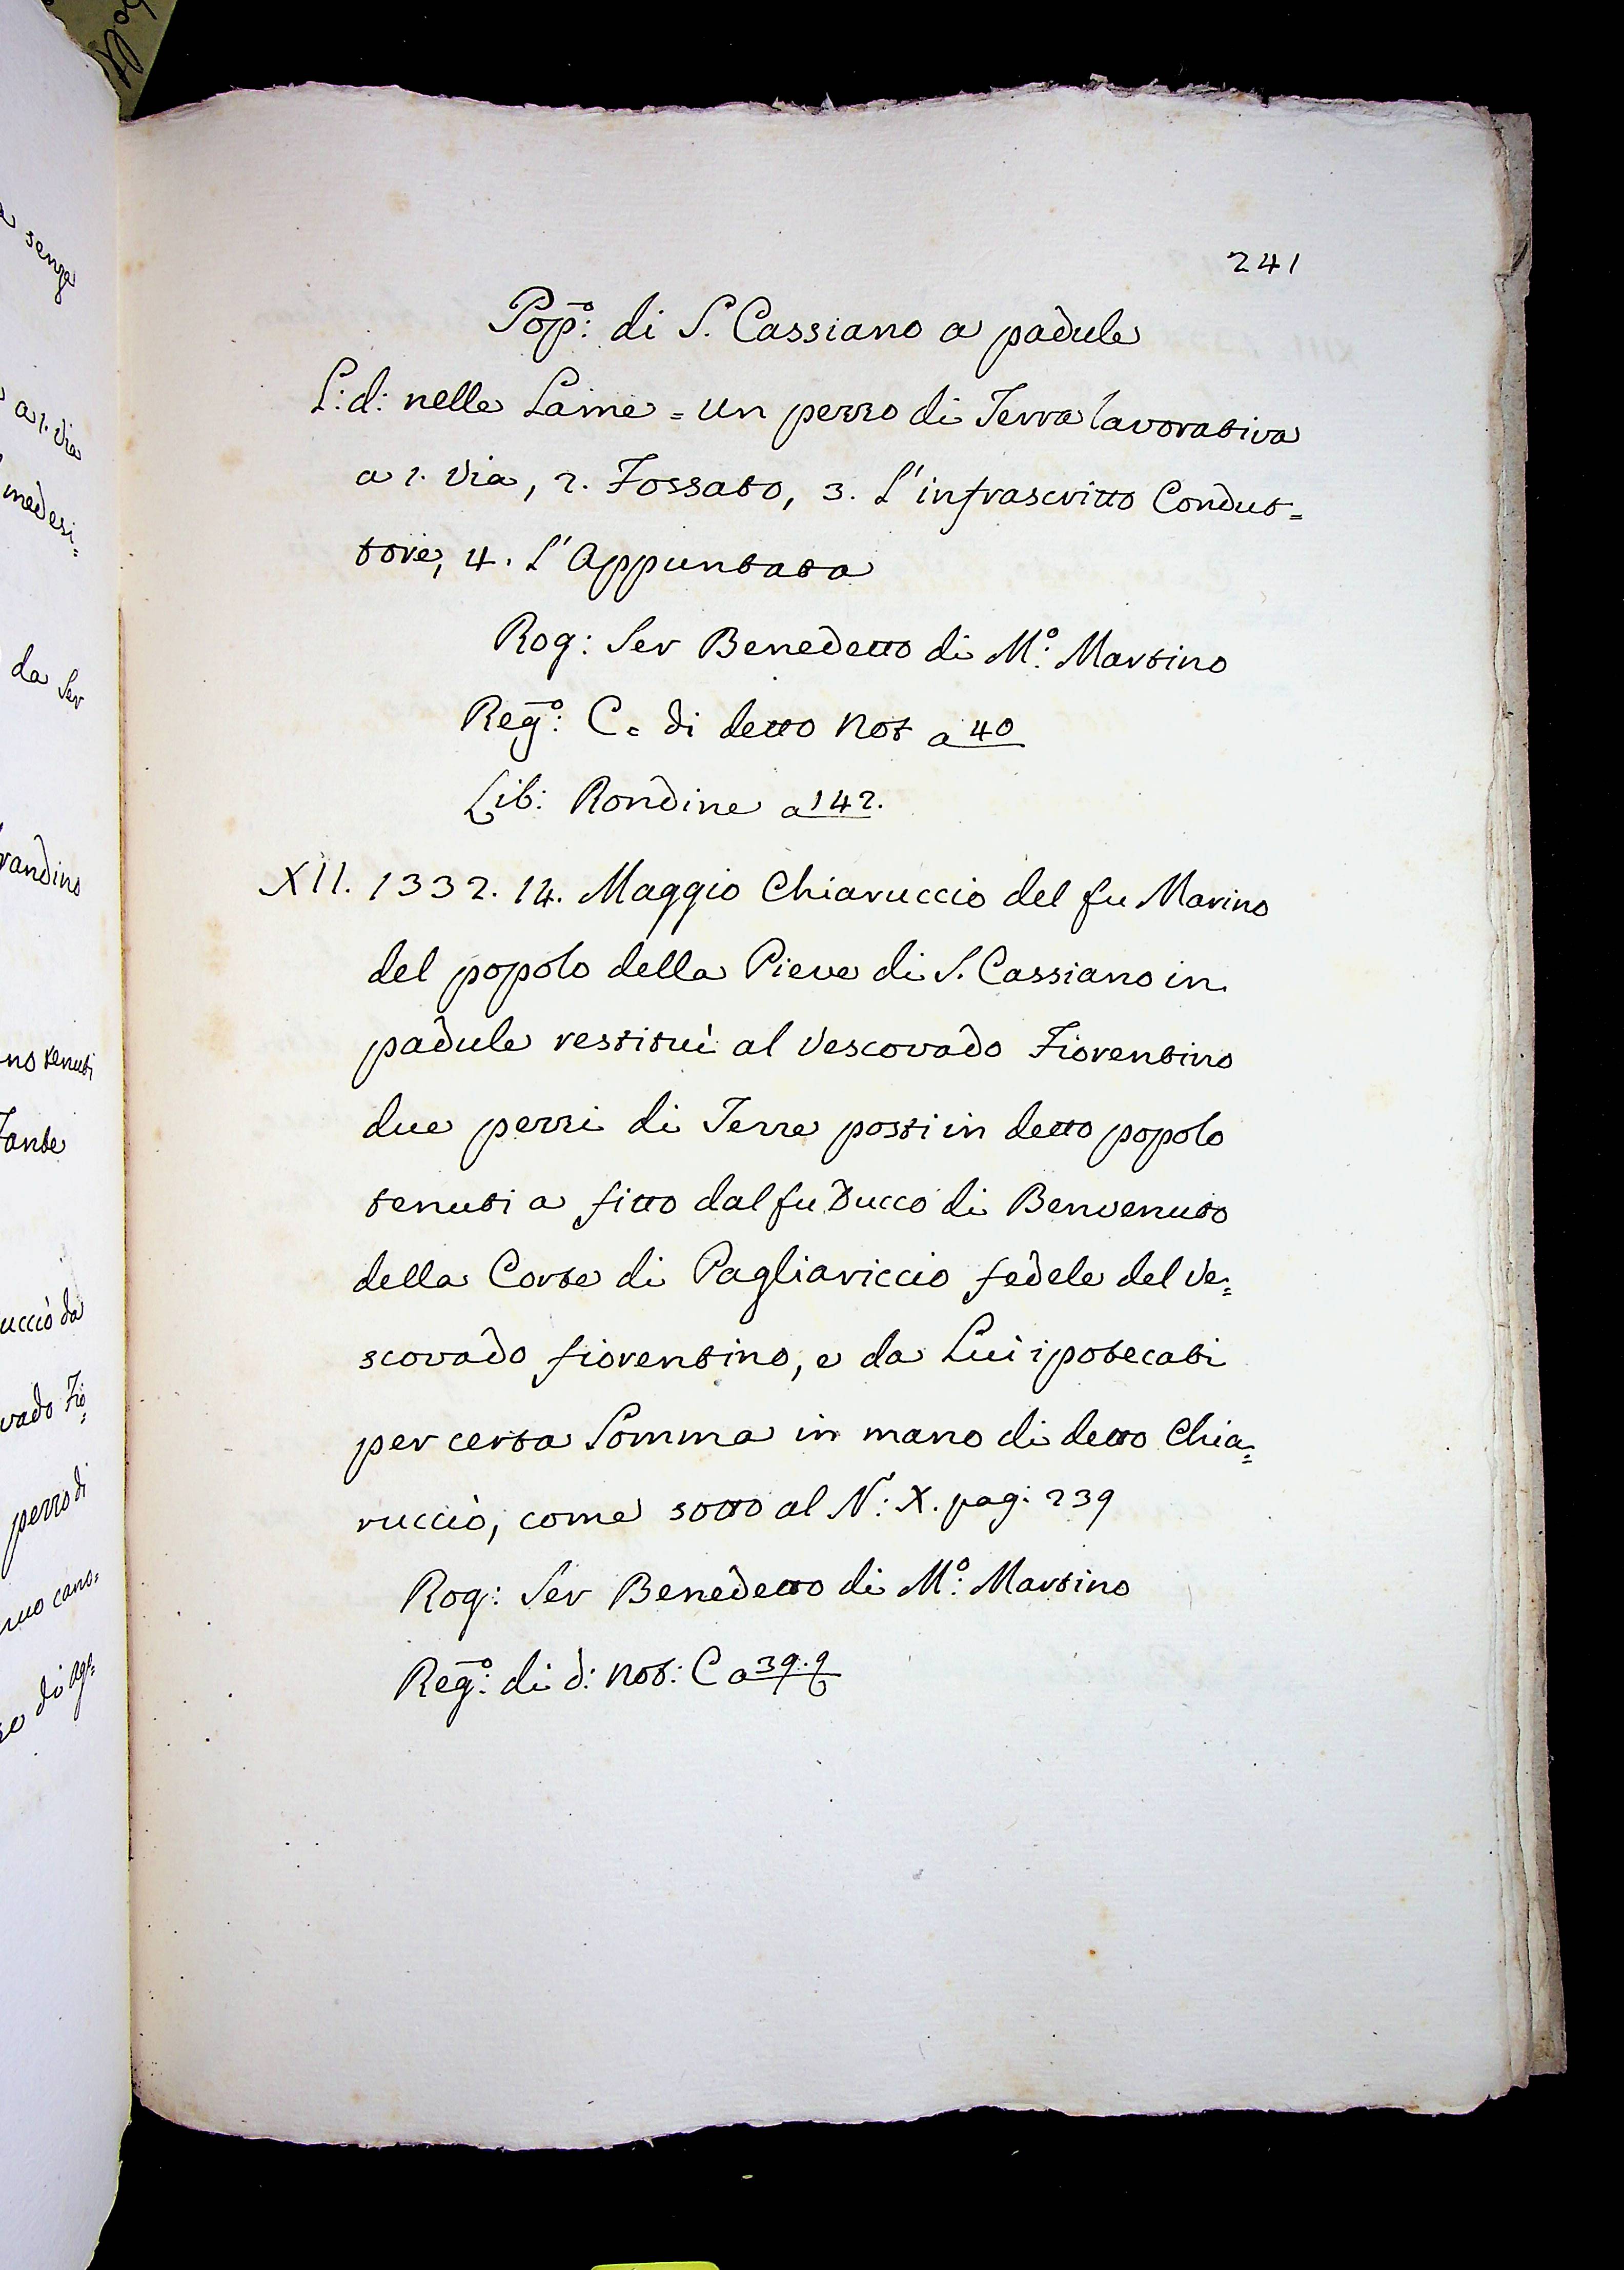 241
Pop̄º: di S. Cassiano a padule
L: d: nelle Lame = Un pezzo di Terra lavorativa
a 1. Via, 2. Fossato, 3. L'infrascritto Condut=
tore, 4. L'Appuntata
Rog: Ser Benedetto di Mº: Martino
Reḡº: C. di detto Not a 40
Lib: Rondine a 142.
XII. 1332. 14. Maggio Chiaruccio del fu Marino
del popolo della Pieve di S. Cassiano in
padule restituì al Vescovado Fiorentino
due pezzi di Terre posti in detto popolo
tenuti a fitto dal fu Ducco di Benvenuto
della Corte di Pagliariccio fedele del Ve=
scovado fiorentino, e da Lui ipotecati
per certa Somma in mano di detto Chia=
ruccio, come sotto al N: X. pag: 239
Rog: Ser Benedetto di Mº: Martino
Reḡº: di d: Not: C a 39.
senza
a 1. Via
medesi=
da Ser
no tenuti
uccio da
vado Fio=
pezzo di
cano=
di